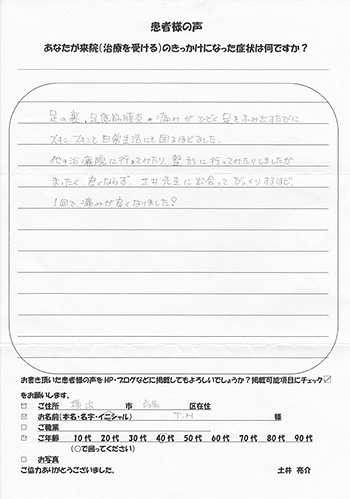 患者様の声
あなたが来院(治療を受ける)のきっかけになった症状は何ですか？
足の裏、足底筋膜炎の痛みがひどく足をふみ出すたびに
ズキンズキンと日常生活にも困るほどでした。
他の治療院に行ってみたり、整形に行ってみたりしましたが
まったく良くならず、土井先生に出会ってびっくりするほど、
1回で痛みが良くなりました？
お書き頂いた患者様の声をHP・ブログなどに掲載してもよろしいでしょうか？掲載可能項目にチェック☑
をお願いします。
☑ ご住所 横浜 市 区在住
☑ お名前(本名・名字・イニシャル) T.H 様
☐ ご職業
☑ ご年齢 10代 20代 30代 40代 50代 60代 70代 80代 90代
(○で囲ってください)
☐ お写真
ご協力ありがとうございました。 土井 亮介